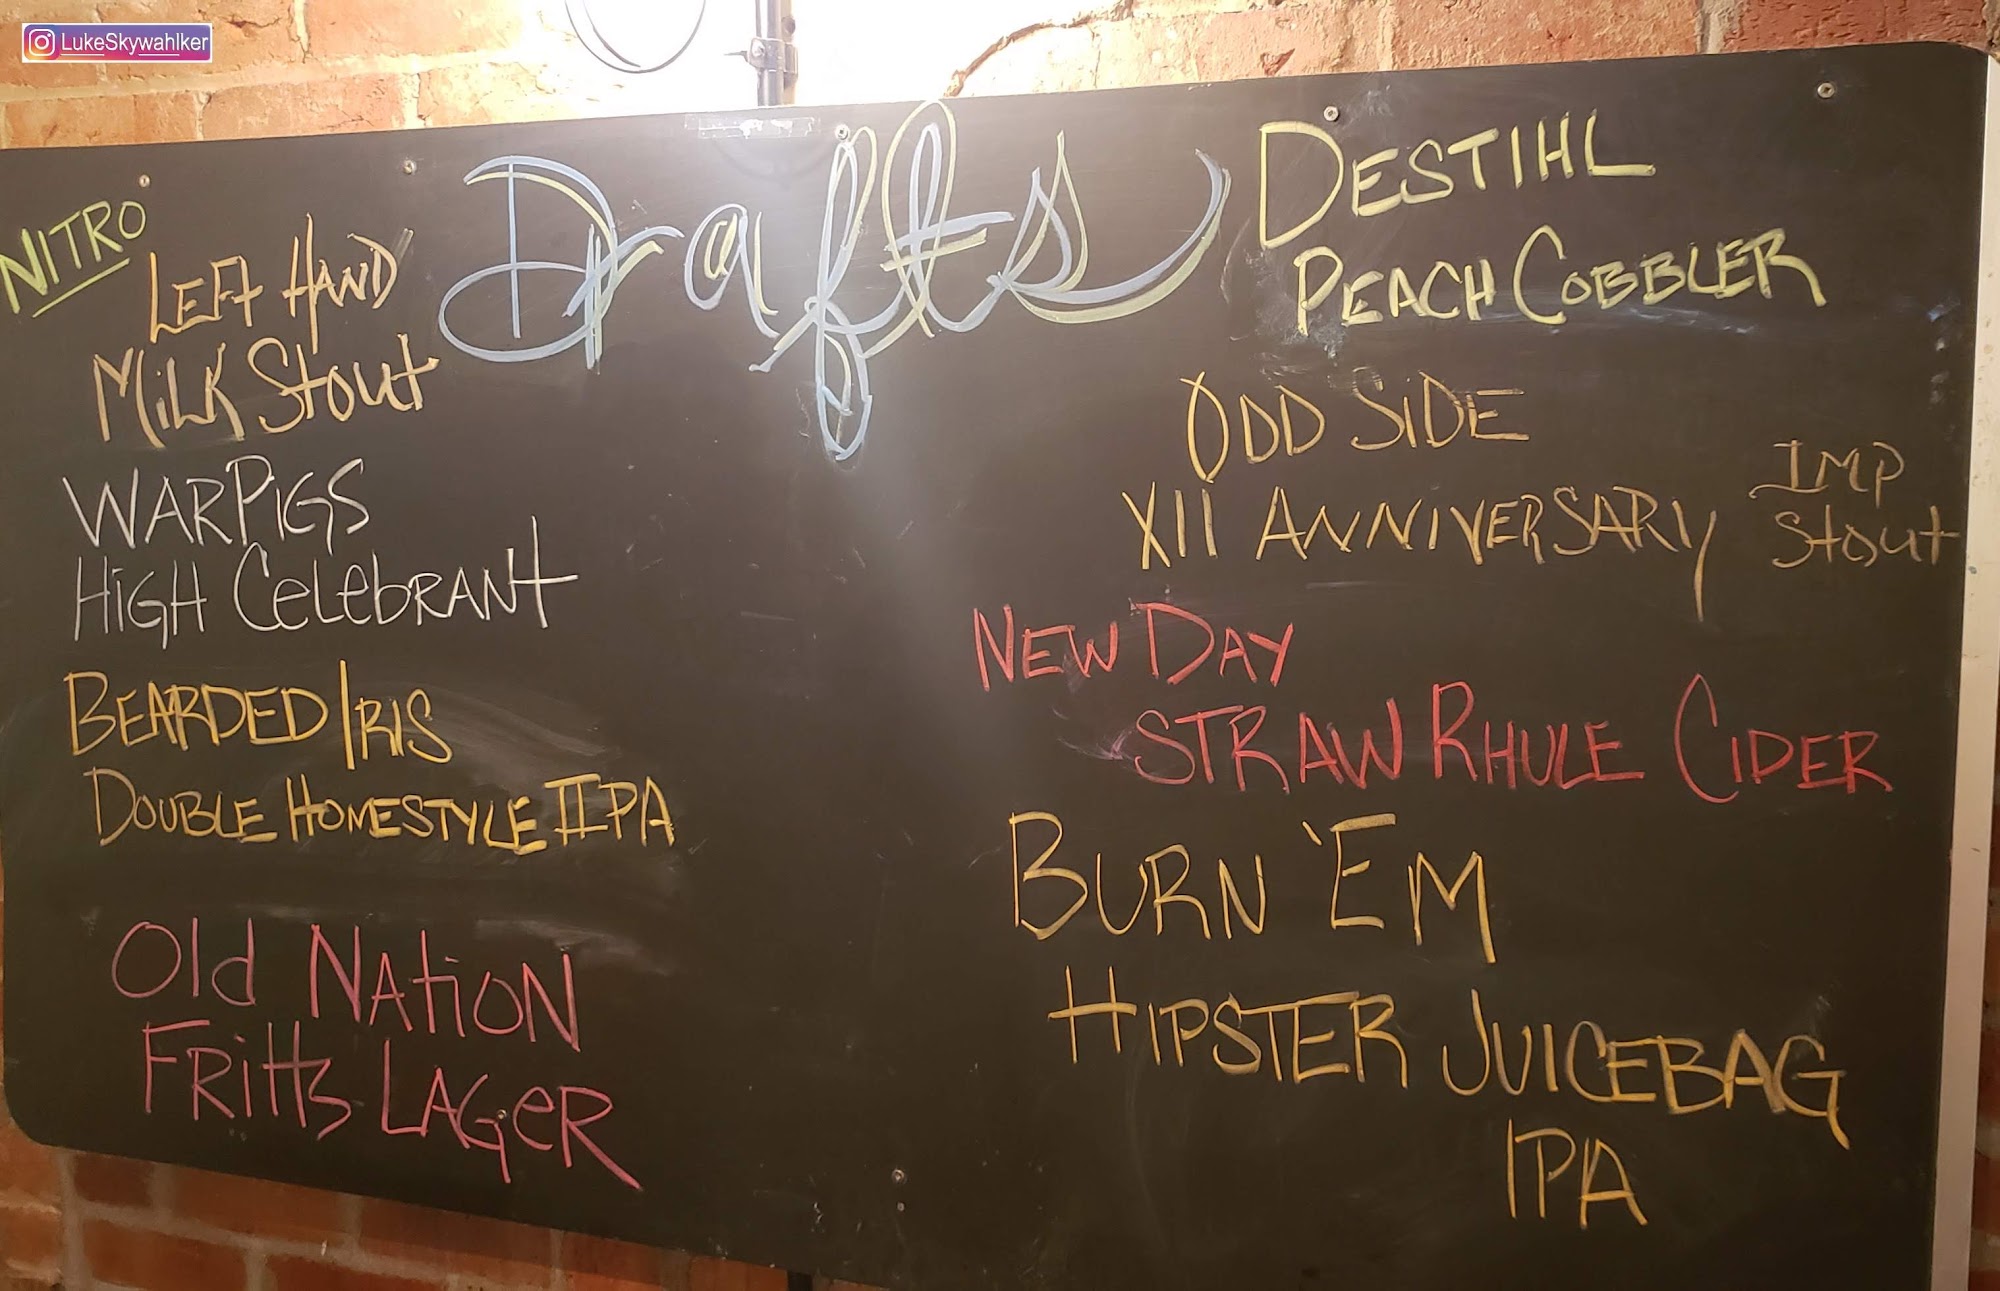 LukeSkywahlker
Drafts
NITRO
LEFt HAND
MiLK Stout
WARPIGS
HIGH CeLebRANt
BEARDED IRIS
DOUBLE HOMESTYLE IIPA
Old NAtiON
FRittz LAGeR
DESTIHL
PEACH COBBLER
ODD SiDE
XII ANNIVERSARY
IMP
Stout
NEW DAY
STRAW RHULE CIDER
BURN 'EM
HIPSTER JUICEBAG
IPA